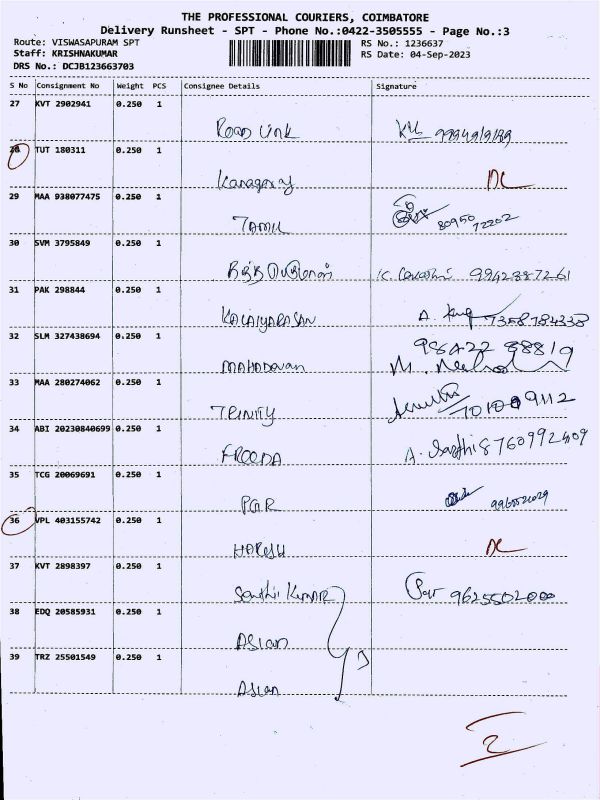 THE PROFESSIONAL COURIERS, COIMBATORE
Delivery Runsheet - SPT - Phone No.:0422-3505555 - Page No.:3
Route: VISWASAPURAM SPT RS No.: 1236637
Staff: KRISHNAKUMAR RS Date: 04-Sep-2023
DRS No.: DCJB123663703
S No Consignment No Weight PCS Consignee Details Signature
27 KVT 2902941 0.250 1
Road Link
28 TUT 180311 0.250 1
Kanagaraj DC
29 MAA 938077475 0.250 1
TAMIL 80950 72202
30 SVM 3795849 0.250 1
9942887261
31 PAK 298844 0.250 1
KALAIYARASAN A. 7358784338
32 SLM 327438694 0.250 1
98422 88819
MAHADEVAN M.
33 MAA 280274062 0.250 1
TRINITY
34 ABI 20230840699 0.250 1
FREEDA A. 8760992409
35 TCG 20069691 0.250 1
PGR
36 VPL 403155742 0.250 1
HARESH DC
37 KVT 2898397 0.250 1
Senthil Kumar 9625502000
38 EDQ 20585931 0.250 1
ASIAN
39 TRZ 25501549 0.250 1
Asian
2